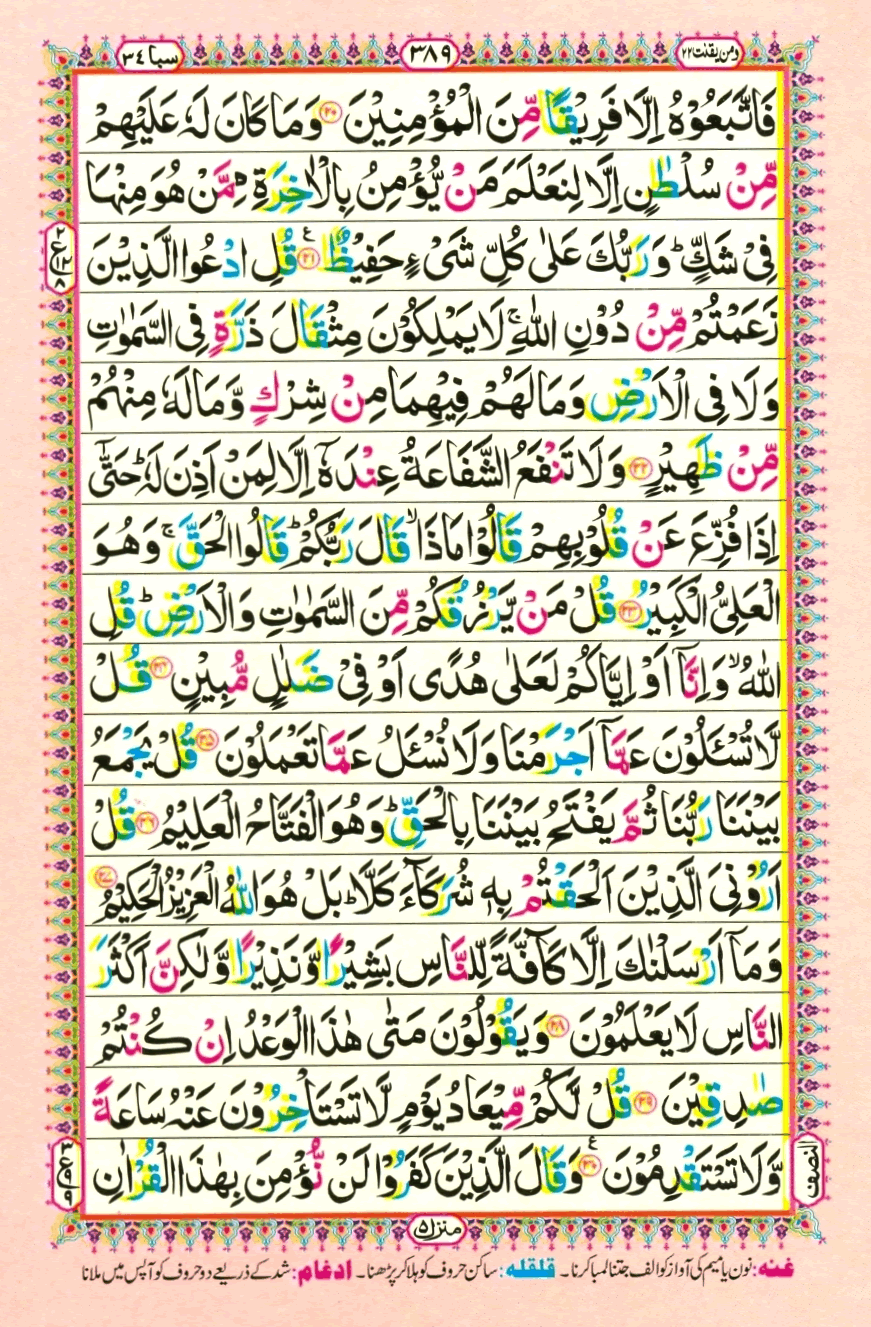 ومن یقنت ۲۲ ۳۸۹ سبا ۳۴
فَاتَّبَعُوْهُ اِلَّا فَرِیْقًا مِّنَ الْمُؤْمِنِیْنَ ﴿۲۰﴾ وَمَا كَانَ لَهٗ عَلَیْهِمْ
مِّنْ سُلْطٰنٍ اِلَّا لِنَعْلَمَ مَنْ یُّؤْمِنُ بِالْاٰخِرَةِ مِمَّنْ هُوَ مِنْهَا
فِیْ شَكٍّ ؕ وَرَبُّكَ عَلٰی كُلِّ شَیْءٍ حَفِیْظٌ ﴿۲۱﴾ قُلِ ادْعُوا الَّذِیْنَ
زَعَمْتُمْ مِّنْ دُوْنِ اللّٰهِ ۚ لَا یَمْلِكُوْنَ مِثْقَالَ ذَرَّةٍ فِی السَّمٰوٰتِ
وَلَا فِی الْاَرْضِ وَمَا لَهُمْ فِیْهِمَا مِنْ شِرْكٍ وَّمَا لَهٗ مِنْهُمْ
مِّنْ ظَهِیْرٍ ﴿۲۲﴾ وَلَا تَنْفَعُ الشَّفَاعَةُ عِنْدَهٗۤ اِلَّا لِمَنْ اَذِنَ لَهٗ ؕ حَتّٰۤی
اِذَا فُزِّعَ عَنْ قُلُوْبِهِمْ قَالُوْا مَاذَا ۙ قَالَ رَبُّكُمْ ؕ قَالُوا الْحَقَّ ۚ وَهُوَ
الْعَلِیُّ الْكَبِیْرُ ﴿۲۳﴾ قُلْ مَنْ یَّرْزُقُكُمْ مِّنَ السَّمٰوٰتِ وَالْاَرْضِ ؕ قُلِ
اللّٰهُ ۙ وَاِنَّاۤ اَوْ اِیَّاكُمْ لَعَلٰی هُدًی اَوْ فِیْ ضَلٰلٍ مُّبِیْنٍ ﴿۲۴﴾ قُلْ
لَّا تُسْئَلُوْنَ عَمَّاۤ اَجْرَمْنَا وَلَا نُسْئَلُ عَمَّا تَعْمَلُوْنَ ﴿۲۵﴾ قُلْ یَجْمَعُ
بَیْنَنَا رَبُّنَا ثُمَّ یَفْتَحُ بَیْنَنَا بِالْحَقِّ ؕ وَهُوَ الْفَتَّاحُ الْعَلِیْمُ ﴿۲۶﴾ قُلْ
اَرُوْنِیَ الَّذِیْنَ اَلْحَقْتُمْ بِهٖ شُرَكَآءَ كَلَّا ؕ بَلْ هُوَ اللّٰهُ الْعَزِیْزُ الْحَكِیْمُ ﴿۲۷﴾
وَمَاۤ اَرْسَلْنٰكَ اِلَّا كَآفَّةً لِّلنَّاسِ بَشِیْرًا وَّنَذِیْرًا وَّلٰكِنَّ اَكْثَرَ
النَّاسِ لَا یَعْلَمُوْنَ ﴿۲۸﴾ وَیَقُوْلُوْنَ مَتٰی هٰذَا الْوَعْدُ اِنْ كُنْتُمْ
صٰدِقِیْنَ ﴿۲۹﴾ قُلْ لَّكُمْ مِّیْعَادُ یَوْمٍ لَّا تَسْتَاْخِرُوْنَ عَنْهُ سَاعَةً
وَّلَا تَسْتَقْدِمُوْنَ ﴿۳۰﴾ وَقَالَ الَّذِیْنَ كَفَرُوْا لَنْ نُّؤْمِنَ بِهٰذَا الْقُرْاٰنِ
النصف
منزل ۵
غنه: نون یا میم کی آواز کو الف جتنا لمبا کرنا۔ قلقله: ساکن حروف کو ہلا کر پڑھنا۔ ادغام: شد کے ذریعے دو حروف کو آپس میں ملانا